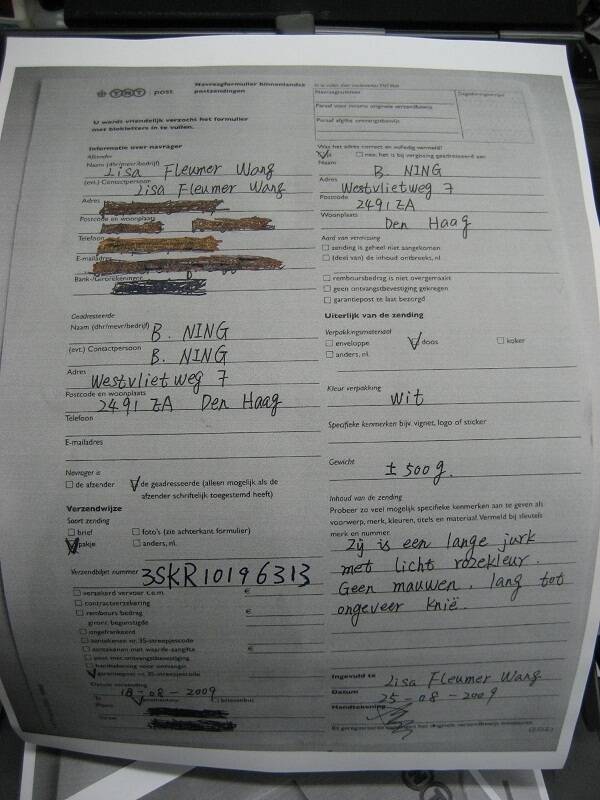 TNT post
Navraagformulier binnenlandse
postzendingen
U wordt vriendelijk verzocht het formulier
met blokletters in te vullen.
Informatie over navrager
Afzender
Naam (dhr/mevr/bedrijf) Lisa Fleumer Wang
(evt.) Contactpersoon Lisa Fleumer Wang
Adres
Postcode en woonplaats
Telefoon
E-mailadres
Bank-/Girorekening
Geadresseerde
Naam (dhr/mevr/bedrijf) B. NING
(evt.) Contactpersoon B. NING
Adres
Westvlietweg 7
Postcode en woonplaats
2491 ZA Den Haag
Telefoon
E-mailadres
Navrager is
de afzender
de geadresseerde (alleen mogelijk als de
afzender schriftelijk toegestemd heeft)
Verzendwijze
Soort zending
brief
foto's (zie achterkant formulier)
pakje
anders, nl.
Verzendbijet nummer 3SKR10196313
verzekerd vervoer t.e.m. €
contractverzekering
rembours bedrag €
gironr. begunstigde
ongefrankeerd
aantekenen nr. 35-streepjescode
aantekenen met waarde-aangifte €
post met ontvangstbevestiging
garantiepost nr. 35-streepjescode
Datum verzending
18-08-2009
Plaats
Navraagnummer
Paraaf voor inname originele verzendbewijs
Paraaf afgifte ontvangstbewijs
Dagtekeningstempel
Was het adres correct en volledig vermeld?
ja
nee, het is bij vergissing geadresseerd aan
Naam
B. NING
Adres
Westvlietweg 7
Postcode
2491 ZA
Woonplaats
Den Haag
Aard van vermissing
zending is geheel niet aangekomen
(deel van) de inhoud ontbreekt, nl.
remboursbedrag is niet overgemaakt
geen ontvangstbevestiging gekregen
garantiepost te laat bezorgd
Uiterlijk van de zending
Verpakkingsmateriaal
enveloppe
doos
koker
anders, nl.
Kleur verpakking
wit
Specifieke kenmerken bijv. vignet, logo of sticker
Gewicht
± 500 g.
Inhoud van de zending
Probeer zo veel mogelijk specifieke kenmerken aan te geven als
voorwerp, merk, kleuren, titels en materiaal. Vermeld bij sleutels
merk en nummer.
Zij is een lange jurk
met licht rozekleur.
Geen mauwen. lang tot
ongeveer knië.
Ingevuld te Lisa Fleumer Wang
Datum
25-08-2009
Handtekening